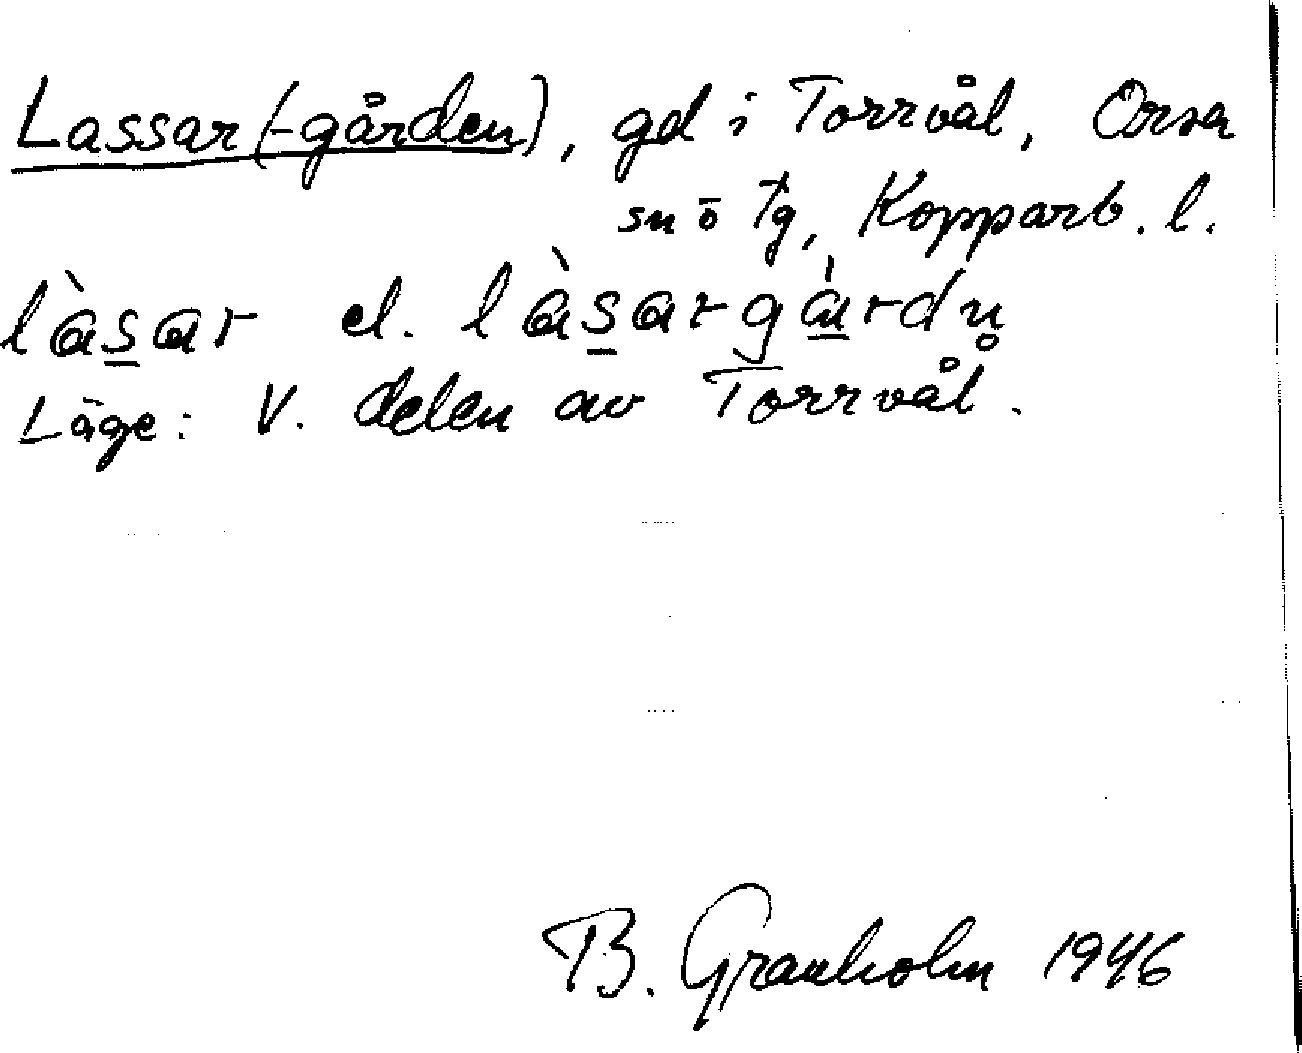 Lassar(-gården), gd i Torrvål, Orsa
sn ō tg, Kopparb. l.
làs̲ar el. làs̲argá̲rdn̥
Läge: V. delen av Torrvål.
B. Granholm 1946